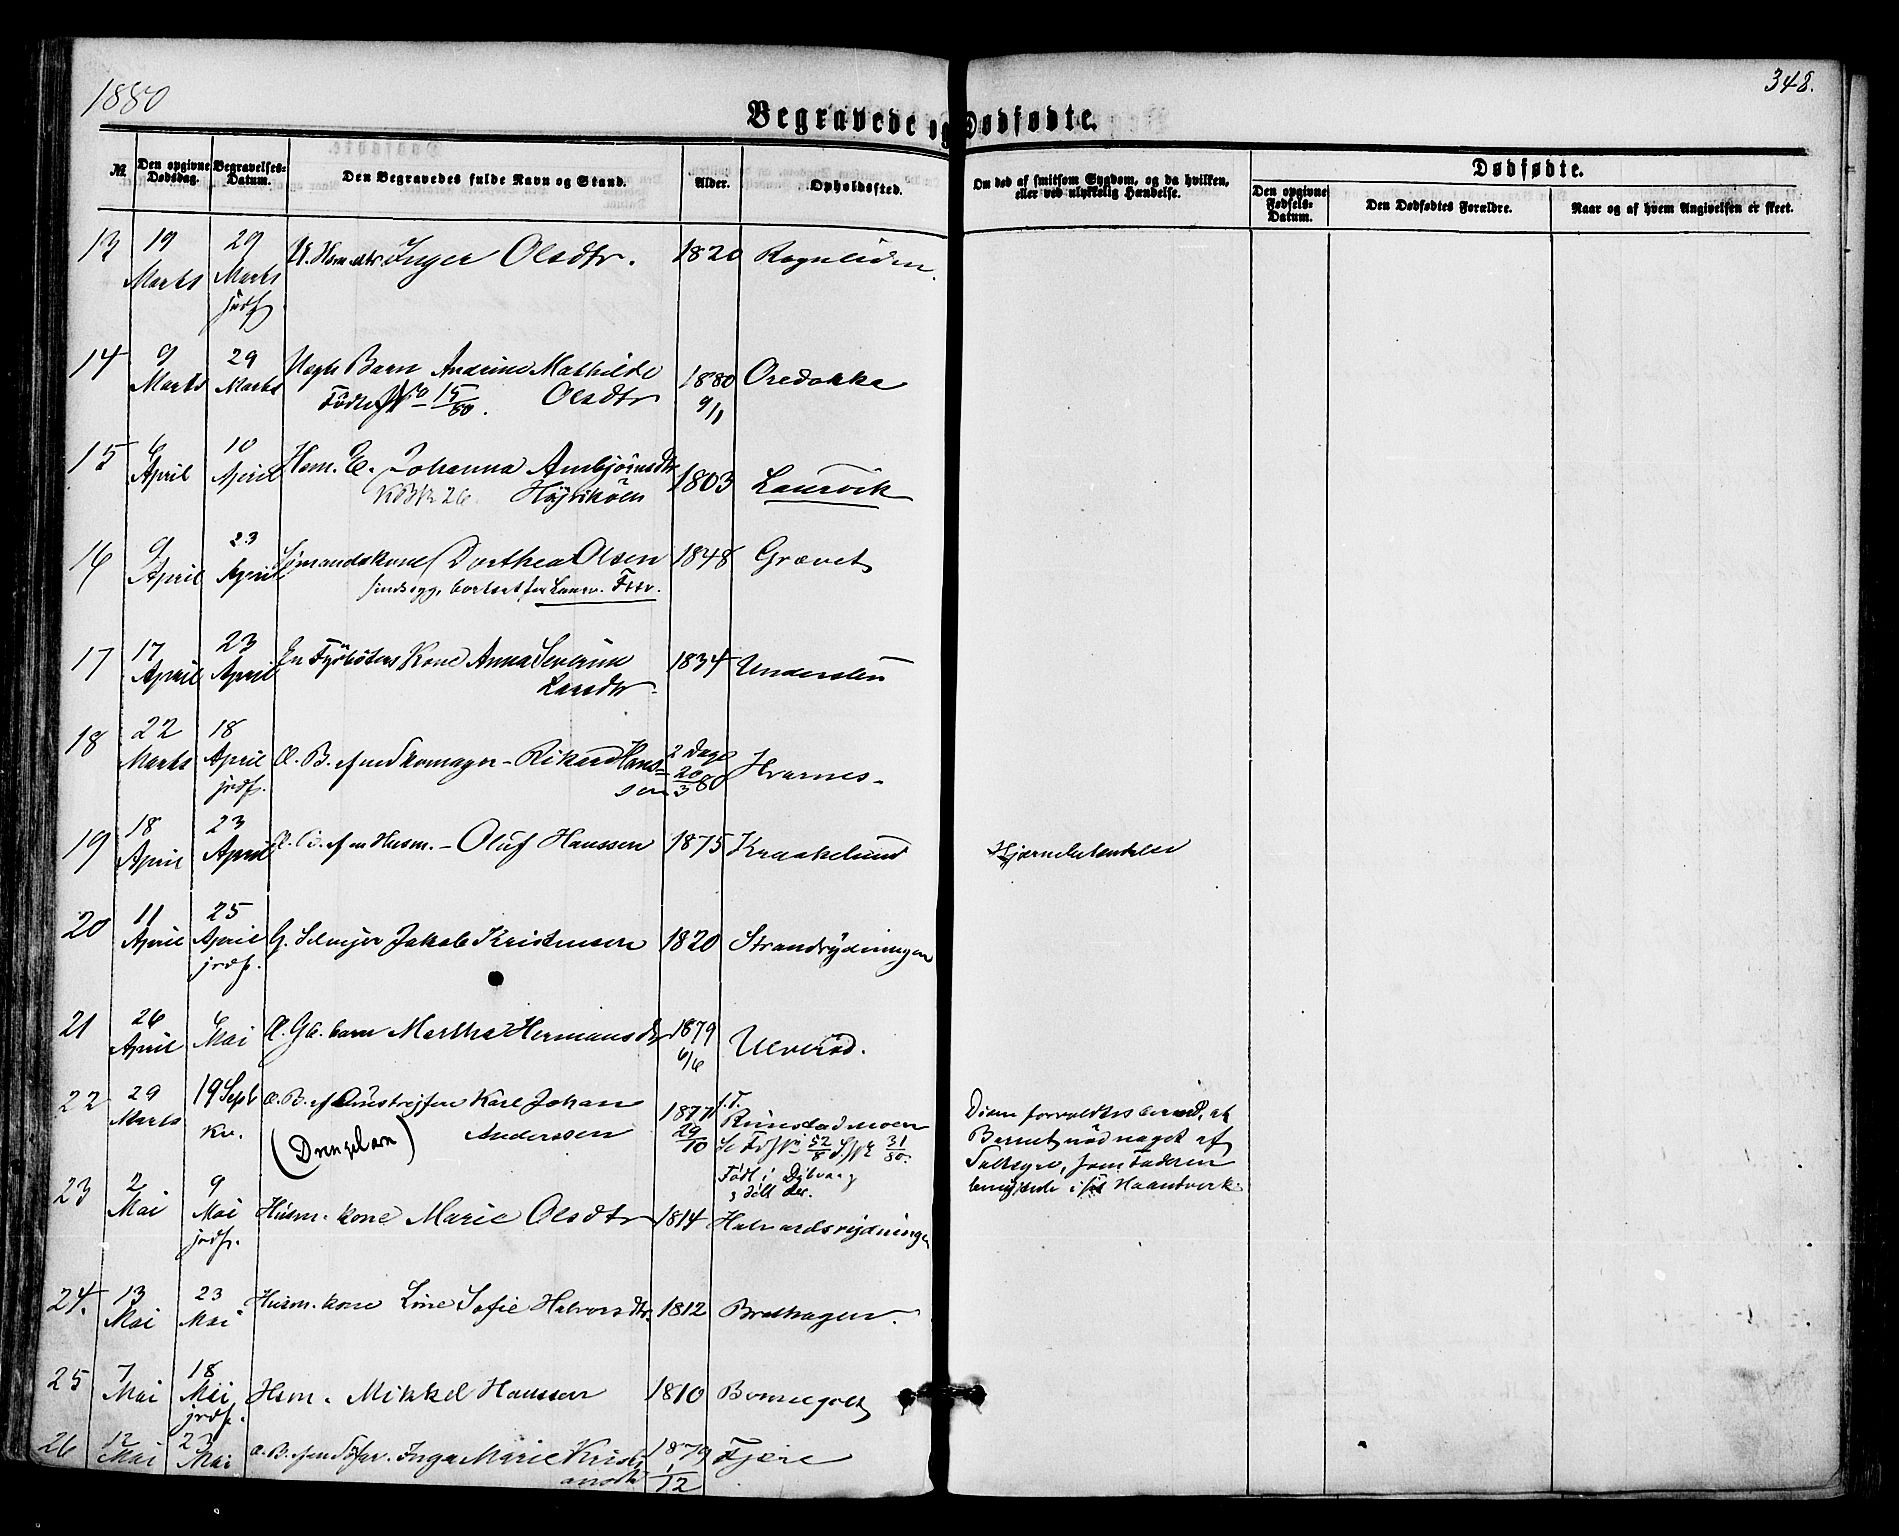 1880
348.
Begravede og Dødfødte.
№
Den opgivne Dødsdag.
Begravelses-Datum.
Den Begravedes fulde Navn og Stand.
Alder.
Opholdssted.
Om død af smitsom Sygdom, og da hvilken, eller ved ulykkelig Hændelse.
Dødfødte.
Den opgivne Fødsels-Datum.
Den Dødfødtes Forældre.
Naar og af hvem Angivelsen er skeet.
13 19 29 Inger Olsdtr. 1820 Rognliden.
Marts Marts
jrdf
14 9 29 Uegte Barn Andrine Mathilde 1880 Oredokka
Marts Marts Født No 15/80. Olsdtr 9/1
15 6 10 Hsm. E. Johanna Ambjørnsdtr 1803 Laurvik
April April 26 Høiskoen
16 9 23 Sømandskone Dorthea Olsen 1848 Grævet
April April sindssyg, bortsat for Laurv. Fttv.
17 17 23 En Fyrbøters Kone Anna Severine 1834 Underslen
April April Larsdtr.
18 22 18 Æ. B. af en Skomager - Rikard Hans- 2 Dage Hvarnes.
Marts April sen 20/3 80
jrdf.
19 18 23 Æ. B. af en Husm. - Oluf Hanssen 1875 Kraakelund
April April
Hjernebetendelse
20 11 25 G. Selveier Jakob Kristensen 1820 Strandrydningen
April April
jrdf.
21 26 6 Æ. Gb. barn Martha Hermansdtr 1879 Ulverød.
April Mai 6/6
22 29 19 Sept Æ. B. af Karl Johan 1877 f. T.
Marts kv. (Drengebarn) Anderssen 29/10 Rimstadmoen
52/8 31/80.
Født i Dybvaag
Døden forvoldtes derved, at
Barnet nød noget af
Saltsyre, som Faderen
benyttede i sit Haandverk.
23 2 9 Husm. kone Marie Olsdtr 1814 Halvardsrydningen
Mai Mai
jrdf.
24. 13 23 Husm. kone Line Sofie Halvorsdtr. 1812 Brathagen.
Mai Mai
25 7 18 Hsm. Mikkel Hanssen 1810 Bommegolt
Mai Mai
jrdf.
26 12 23 Æ. B. af en Inga Marie Kristi- 1879 Fjære
Mai Mai ansdtr 1/12